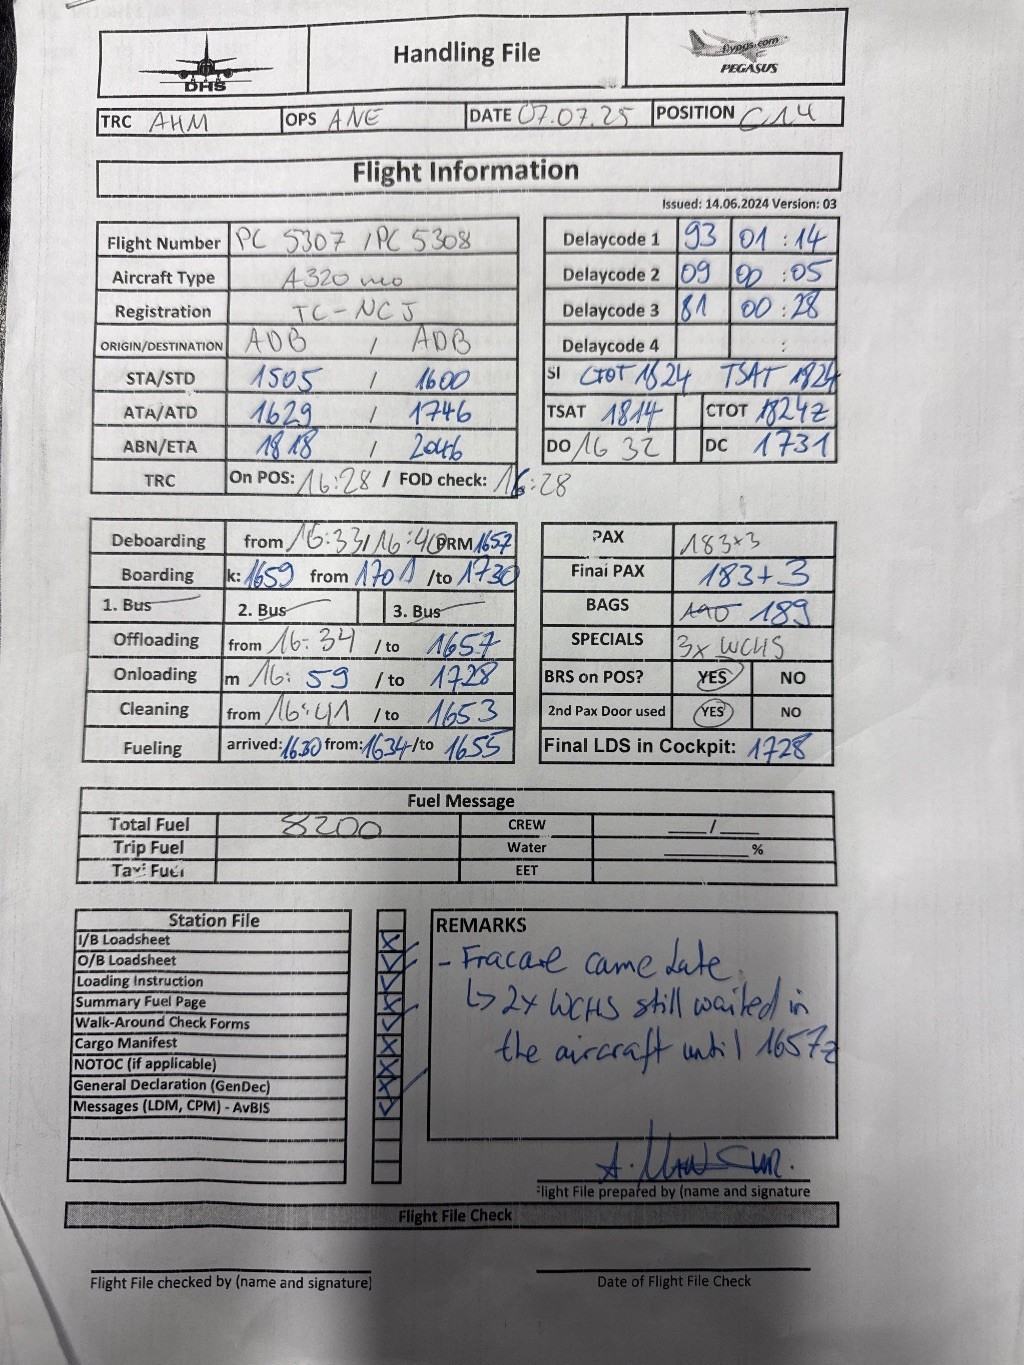 DHS
Handling File
flypgs.com
PEGASUS
TRC AHM OPS ANE DATE 07.07.25 POSITION C14
Flight Information
Issued: 14.06.2024 Version: 03
Flight Number PC 5307 / PC 5308 Delaycode 1 93 01 : 14
Aircraft Type A320 neo Delaycode 2 09 00 : 05
Registration TC-NCJ Delaycode 3 81 00 : 28
ORIGIN/DESTINATION ADB / ADB Delaycode 4 :
STA/STD 1505 / 1600 SI CTOT 1824 TSAT 1824
ATA/ATD 1629 / 1746 TSAT 1814 CTOT 1824z
ABN/ETA 1818 / 2046 DO 16 32 DC 1731
TRC On POS: 16:28 / FOD check: 16:28
Deboarding from 16:33/16:40 PRM 1657 PAX 183+3
Boarding k: 1659 from 1701 /to 1730 Final PAX 183+3
1. Bus 2. Bus 3. Bus BAGS 189
Offloading from 16:34 / to 1657 SPECIALS 3x WCHS
Onloading m 16: 59 / to 1728 BRS on POS? YES NO
Cleaning from 16:41 / to 1653 2nd Pax Door used YES NO
Fueling arrived: 1630 from: 1634 /to 1655 Final LDS in Cockpit: 1728
Fuel Message
Total Fuel 8200 CREW ___/___
Trip Fuel Water ______ %
Taxi Fuel EET
Station File
I/B Loadsheet
O/B Loadsheet
Loading Instruction
Summary Fuel Page
Walk-Around Check Forms
Cargo Manifest
NOTOC (if applicable)
General Declaration (GenDec)
Messages (LDM, CPM) - AvBIS
REMARKS
- Fracare came Late
↳ 2x WCHS still waited in
the aircraft until 1657z
A. Mansur.
Flight File prepared by (name and signature
Flight File Check
Flight File checked by (name and signature) Date of Flight File Check